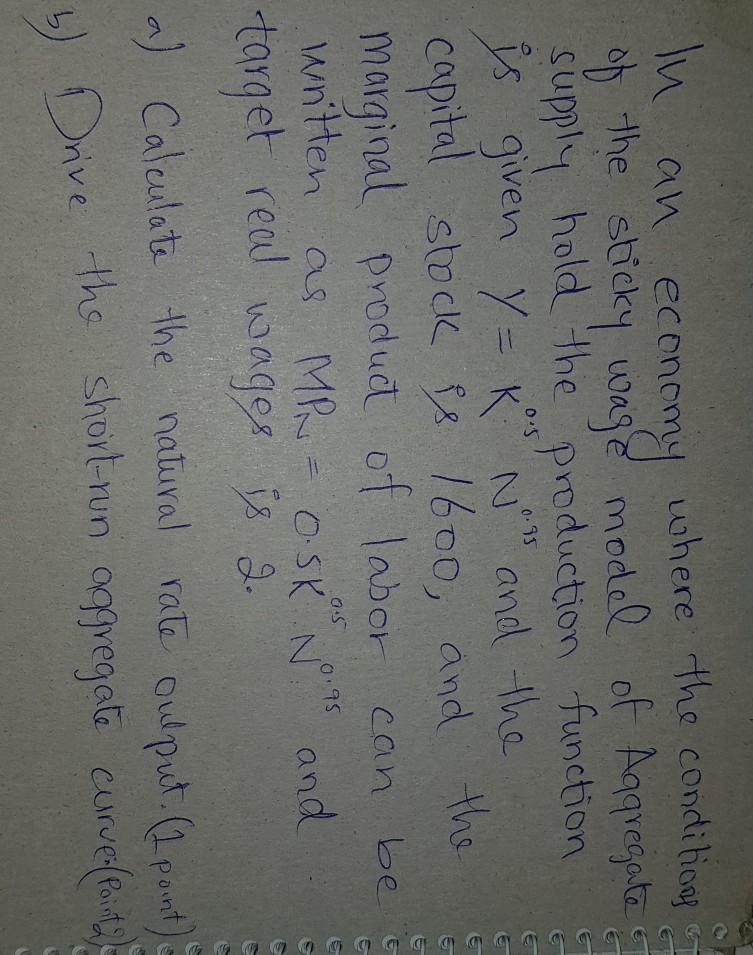 In an economy where the conditions
of the sticky wage model of Aggregate
supply hold the production function
is given Y = K^0.5 N^0.95 and the
capital stock is 1600, and the
marginal product of labor can be
written as MPN = 0.5K^0.5 N^0.95 and
target real wages is 2.
a) Calculate the natural rate output. (1 point)
b) Drive the short-run aggregate curve. (Point 2)